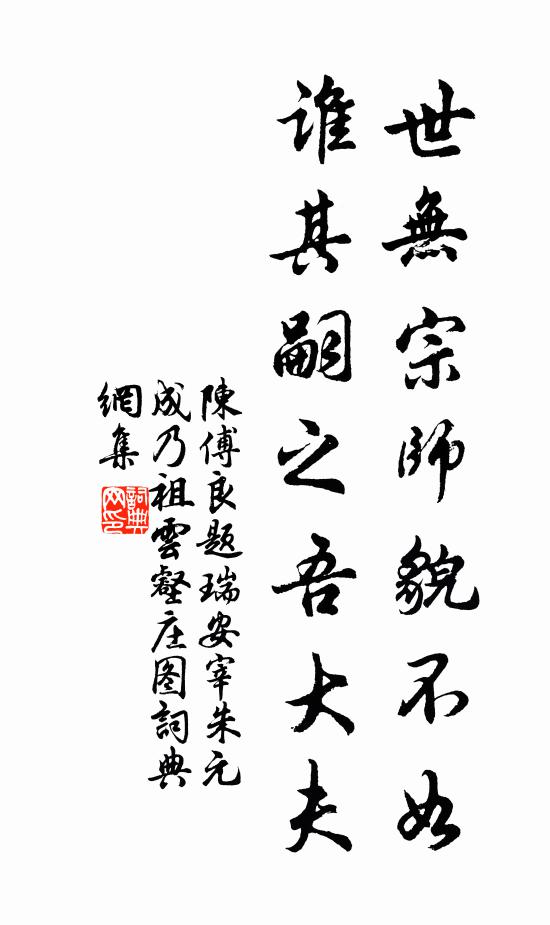 世無宗師貌不如
誰其嗣之吾大夫
陳傅良題瑞安宰朱元
成乃祖雲壑庄图詞典
網集
詞典
网印